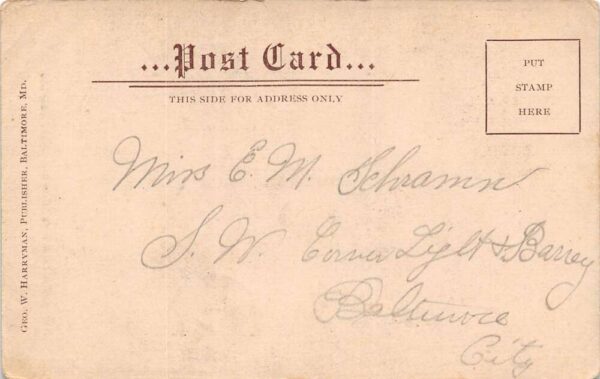 ...Post Card...
THIS SIDE FOR ADDRESS ONLY
PUT
STAMP
HERE
Miss E. M. Schramm
S. W. Corner Light & Barney
Baltimore
City
GEO. W. HARRYMAN, PUBLISHER, BALTIMORE, MD.